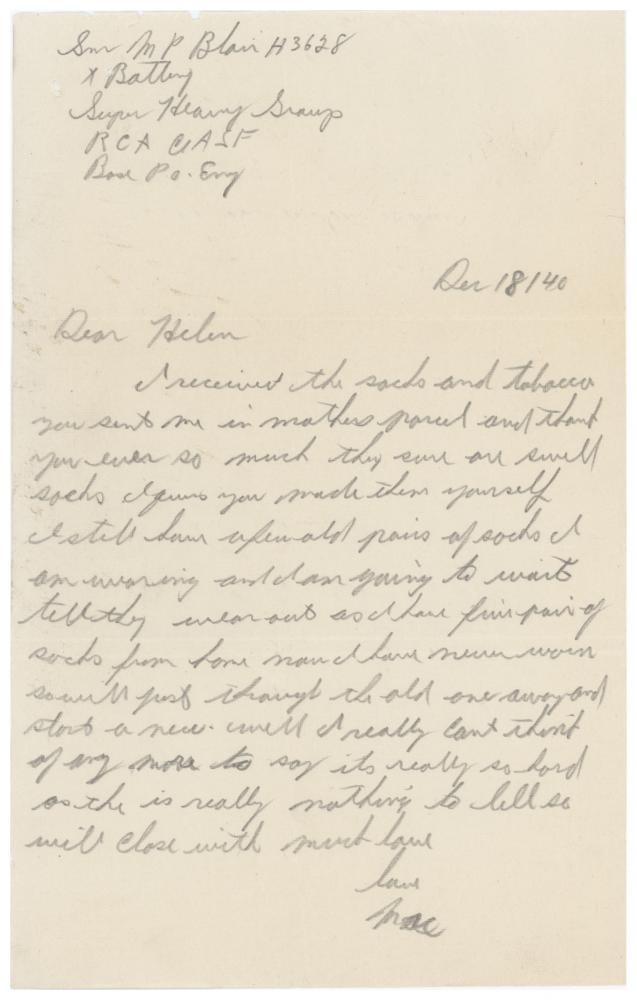 Gnr M P Blair H3628
X Battery
Super Heavy Group
RCA CASF
Base P.o. Eng
Dec 18/40
Dear Helen
I received the socks and tobacco
you sent me in mothers parcel and thank
you ever so much they sure are swell
socks I guess you made them yourself
I still have a few old pairs of socks I
am wearing and I am going to wait
till they wear out as I have five pair of
socks from home now I have never worn
so will just through the old one away and
start a new. well I really cant think
of any more to say its really so hard
as the is really nothing to tell so
will close with much love
love
Mac